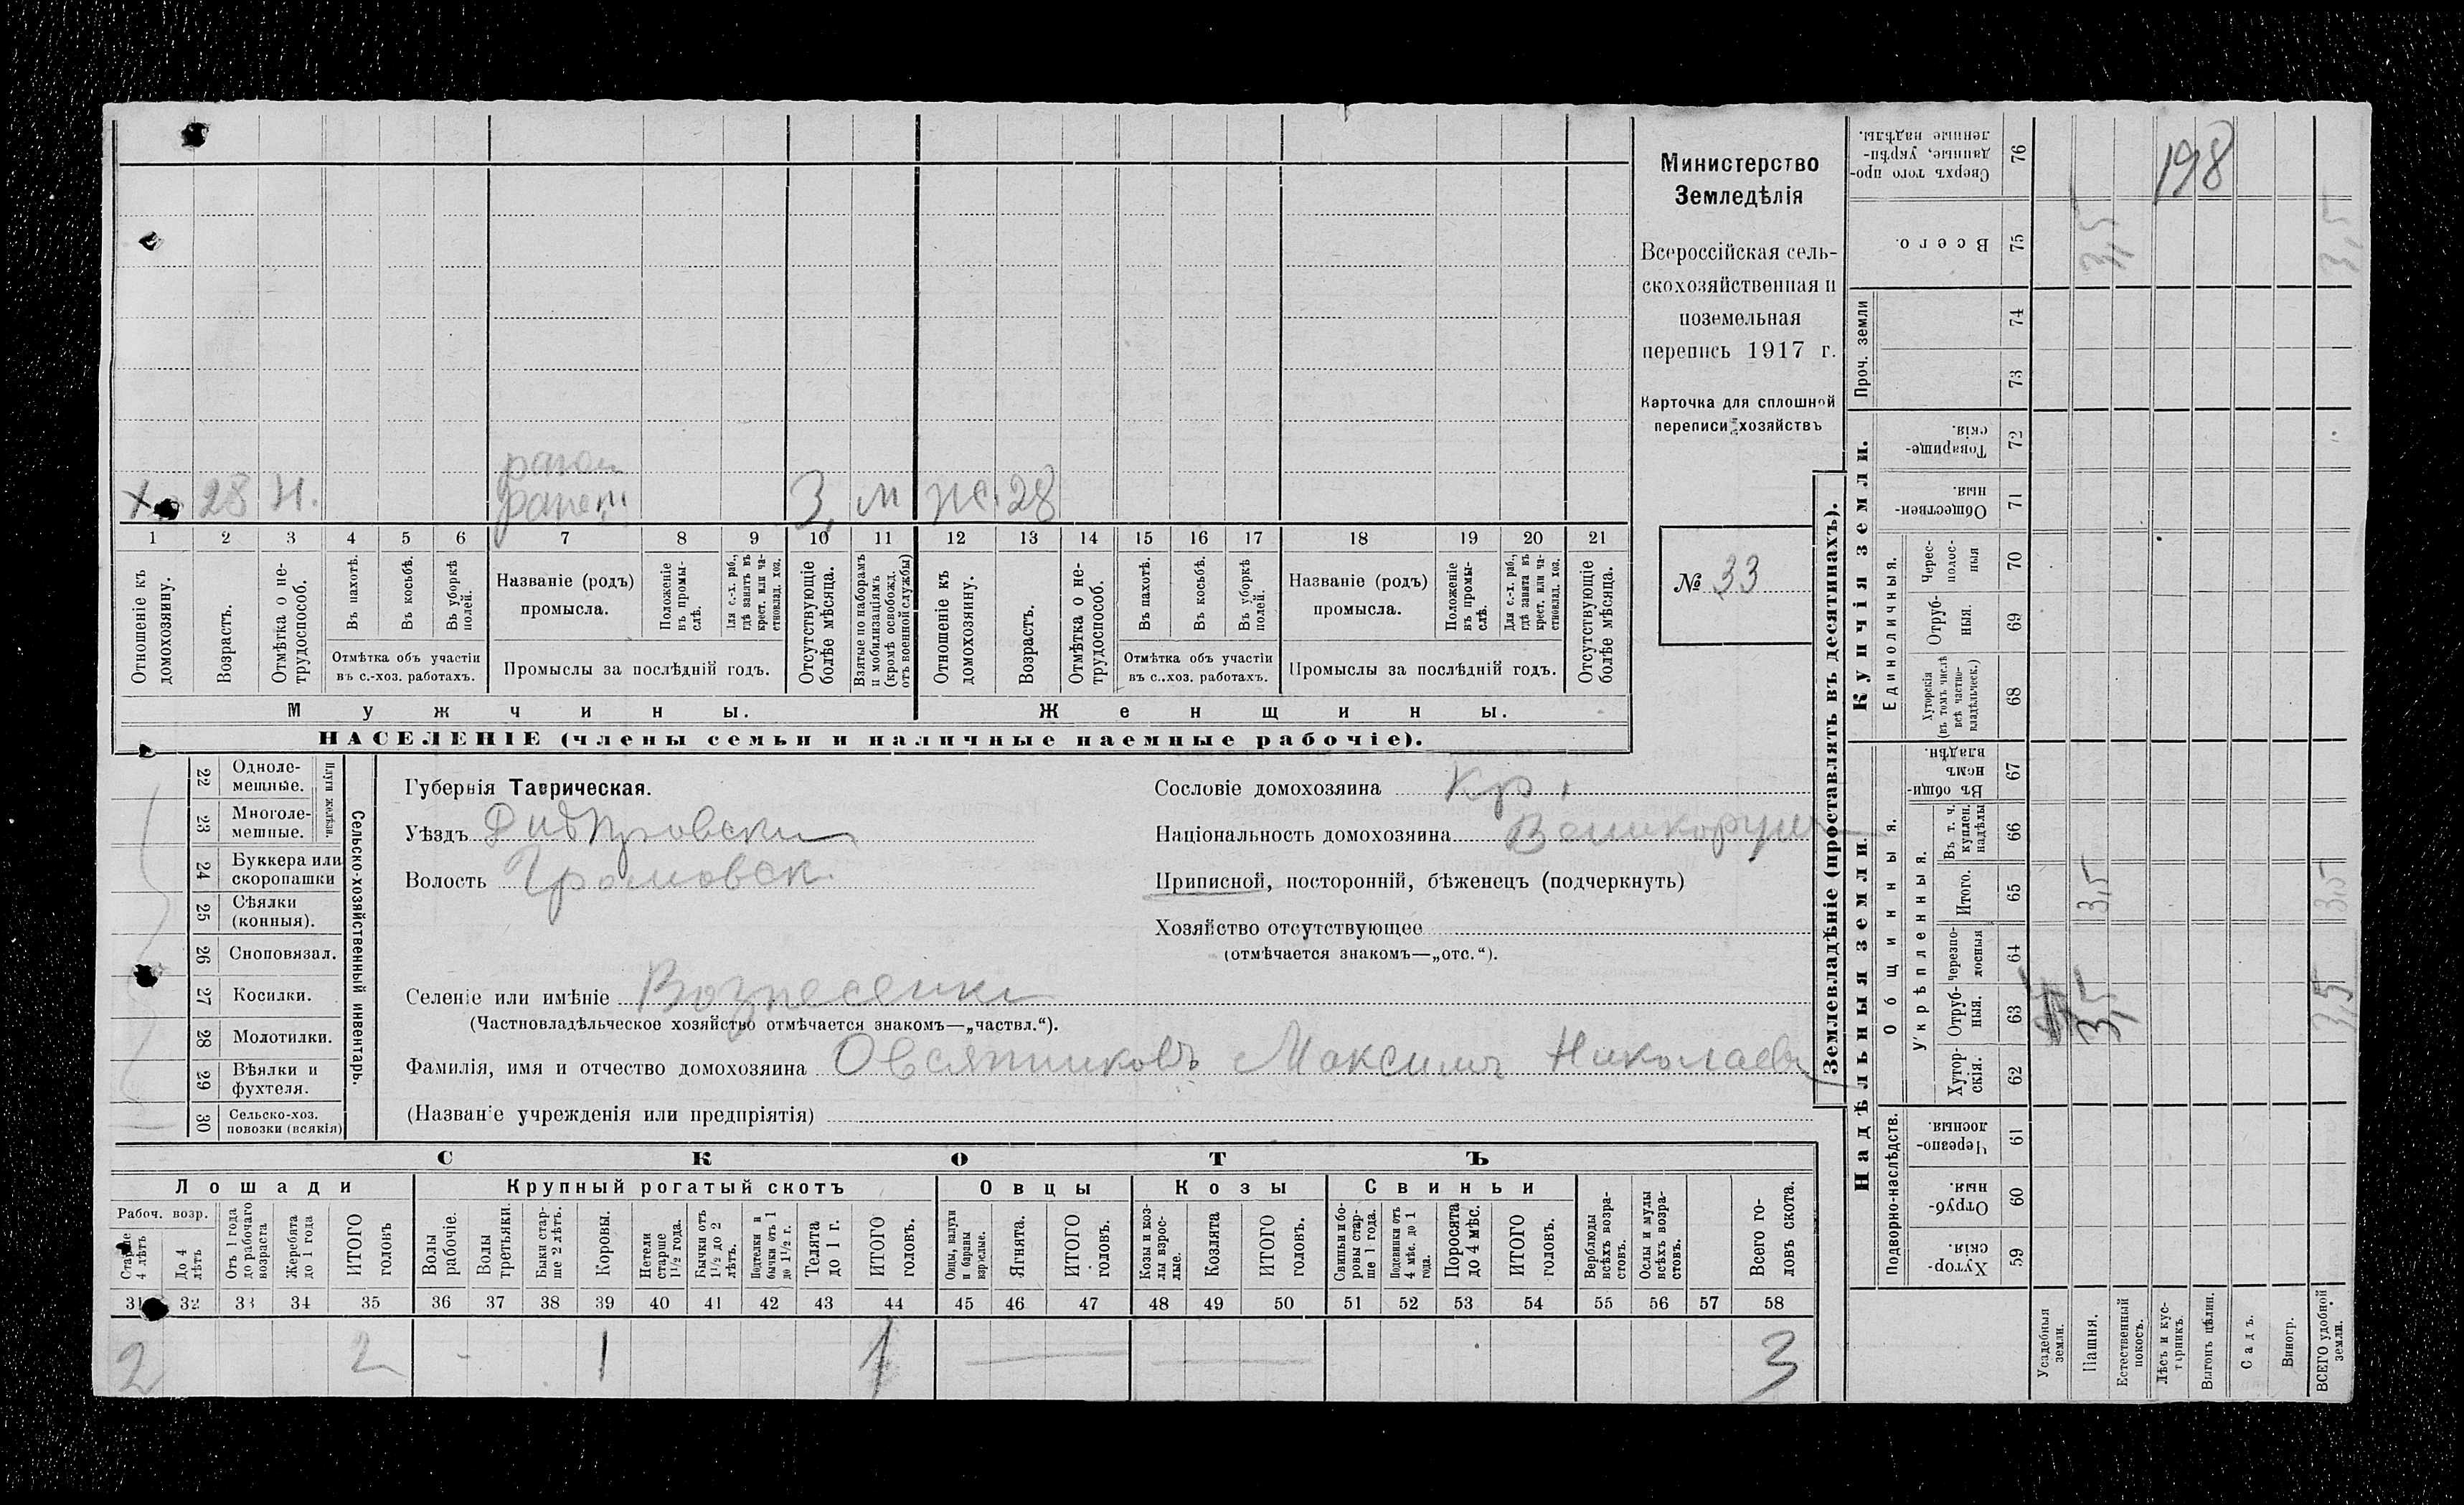 Министерство
Земледѣлія
Всероссійская сель-
скохозяйственная и
поземельная
перепись 1917 г.
Карточка для сплошной
переписи хозяйствъ
№ 33
х. 28 Н. ранен 3, м ж. 28
1 2 3 4 5 6 7 8 9 10 11 12 13 14 15 16 17 18 19 20 21
Отношеніе къ домохозяину.
Возрастъ.
Отмѣтка о не-трудоспособ.
Въ пахотѣ.
Въ косьбѣ.
Въ уборкѣ полей.
Отмѣтка объ участіи
въ с.-хоз. работахъ.
Названіе (родъ)
промысла.
Положеніе въ промы-слѣ.
Для с.-х. раб., гдѣ занятъ въ крест. или ча-стновлад. хоз.
Промыслы за послѣдній годъ.
Отсутствующіе болѣе мѣсяца.
Взятые по наборамъ и мобилизаціямъ (кромѣ освобожд. отъ военной службы)
Отношеніе къ домохозяину.
Возрастъ.
Отмѣтка о не-трудоспособ.
Въ пахотѣ.
Въ косьбѣ.
Въ уборкѣ полей.
Отмѣтка объ участіи
въ с..хоз. работахъ.
Названіе (родъ)
промысла.
Положеніе въ промы-слѣ.
Для с.-х. раб., гдѣ занята въ крест. или ча-стновлад. хоз.
Промыслы за послѣдній годъ.
Отсутствующіе болѣе мѣсяца.
Мужчины. Женщины.
НАСЕЛЕНІЕ (члены семьи и наличные наемные рабочіе).
22 Одноле-мешные.
23 Многоле-мешные.
Плуги желѣзн.
24 Буккера или скоропашки
25 Сѣялки (конныя).
26 Сноповязал.
27 Косилки.
28 Молотилки.
29 Вѣялки и фухтеля.
30 Сельско-хоз. повозки (всякія)
Сельско-хозяйственный инвентарь.
Губернія Таврическая.
Уѣздъ Днѣпровски
Волость Громовск.
Сословіе домохозяина кр.
Національность домохозяина Великорус
Приписной, посторонній, бѣженецъ (подчеркнуть)
Хозяйство отсутствующее
(отмѣчается знакомъ—„отс.“).
Селеніе или имѣніе Вознесенки
(Частновладѣльческое хозяйство отмѣчается знакомъ—„частвл.“).
Фамилія, имя и отчество домохозяина Овсянниковъ Максимъ Николаевъ
(Названіе учрежденія или предпріятія)
СКОТЪ
Лошади Крупный рогатый скотъ Овцы Козы Свиньи
Рабоч. возр.
Старше 4 лѣтъ
До 4 лѣтъ
Отъ 1 года до рабочаго возраста
Жеребята до 1 года
ИТОГО головъ
Волы рабочіе.
Волы третьяки.
Быки стар-ше 2 лѣтъ.
Коровы.
Нетели старше 1½ года.
Бычки отъ 1½ до 2 лѣтъ.
Подтелки и бычки отъ 1 до 1½ г.
Телята до 1 г.
ИТОГО головъ.
Овцы, валухи и бараны взрослые.
Ягнята.
ИТОГО головъ.
Козы и коз-лы взрос-лые.
Козлята
ИТОГО головъ.
Свиньи и бо-ровы стар-ше 1 года.
Подсвинки отъ 4 мѣс. до 1 года.
Поросята до 4 мѣс.
ИТОГО головъ.
Верблюды всѣхъ возра-стовъ.
Ослы и мулы всѣхъ возра-стовъ.
Всего го-ловъ скота.
31 32 33 34 35 36 37 38 39 40 41 42 43 44 45 46 47 48 49 50 51 52 53 54 55 56 57 58
2 2 - 1 1 3
Землевладѣніе (проставлять въ десятинахъ).
Купчія земли.
Надѣльныя земли.
Сверхъ того про-данные, укрѣп-ленные надѣлы. 76 198
Всего. 75 3,5 3,5
Проч. земли 74
73
Товарище-скія. 72
Обществен-ныя. 71
Единоличныя.
Черес-полос-ныя 70
Отруб-ныя. 69
Хуторскія (въ томъ числѣ всѣ частно-владѣльческ.) 68
Общинныя.
Въ общи-номъ владѣн. 67
Укрѣпленныя.
Въ т. ч. куплен. надѣлы 66
Итого. 65 3,5 3,5
Черезпо-лосныя 64
Отруб-ныя. 63 3,5 3,5
Хутор-скія. 62
Подворно-наслѣдств.
Черезпо-лосныя. 61
Отруб-ныя. 60
Хутор-скія. 59
Усадебныя земли.
Пашня.
Естественный покосъ.
Лѣсъ и кус-тарникъ.
Выгонъ цѣлин.
Садъ.
Виногр.
ВСЕГО удобной земли.